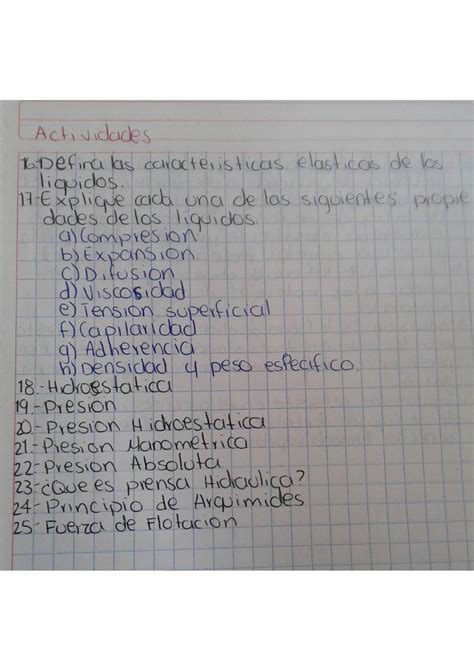 Actividades
16.-Defina las caracteristicas elasticas de los
liquidos.
17.-Explique cada una de las siguientes propie
dades de los liquidos.
a) Compresion
b) Expansion
c) Difusion
d) Viscosidad
e) Tension superficial
f) Capilaridad
g) Adherencia
h) Densidad y peso especifico.
18.-Hidroestatica
19.-Presion
20.-Presion Hidroestatica
21.-Presion Manometrica
22.-Presion Absoluta
23.-¿Que es prensa Hidraulica?
24.-Principio de Arquimides
25.-Fuerza de Flotacion